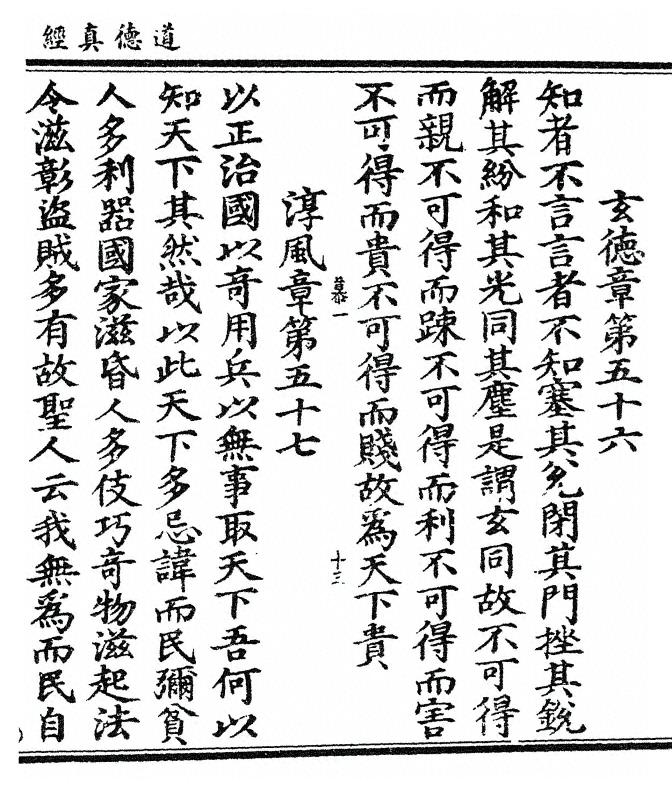 道德真經
玄德章第五十六
知者不言言者不知塞其兌閉其門挫其銳
解其紛和其光同其塵是謂玄同故不可得
而親不可得而踈不可得而利不可得而害
不可得而貴不可得而賤故爲天下貴
慕一 十三
淳風章第五十七
以正治國以奇用兵以無事取天下吾何以
知天下其然哉以此天下多忌諱而民彌貧
人多利器國家滋昏人多伎巧奇物滋起法
令滋彰盜賊多有故聖人云我無爲而民自